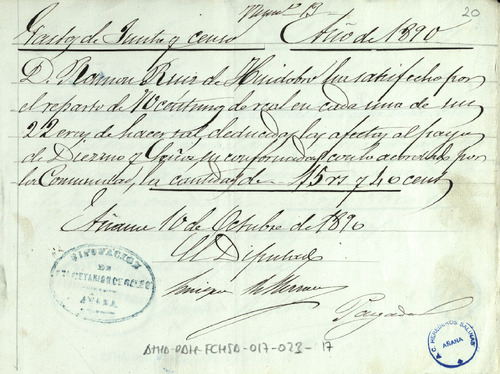 20
Gastos de Junta y censo Año de 1890
D. Roman Ruiz de Huidobro ha satisfecho por
el reparto de 70 centimos de real en cada una de sus
22 eras de hacer sal, deducidas las afectas al pago
de Diezmo y conformidad con lo acordado por
la Comunidad, la cantidad de 15 rs y 40 cents
Añana 10 de Octubre de 1890
El Diputado
DIPUTACION
DE
PROPIETARIOS DE SALINAS
AÑANA
Pagado
AMHA-PAH-FCHSA-017-023-17
A.C. HEREDEROS SALINAS
AÑANA